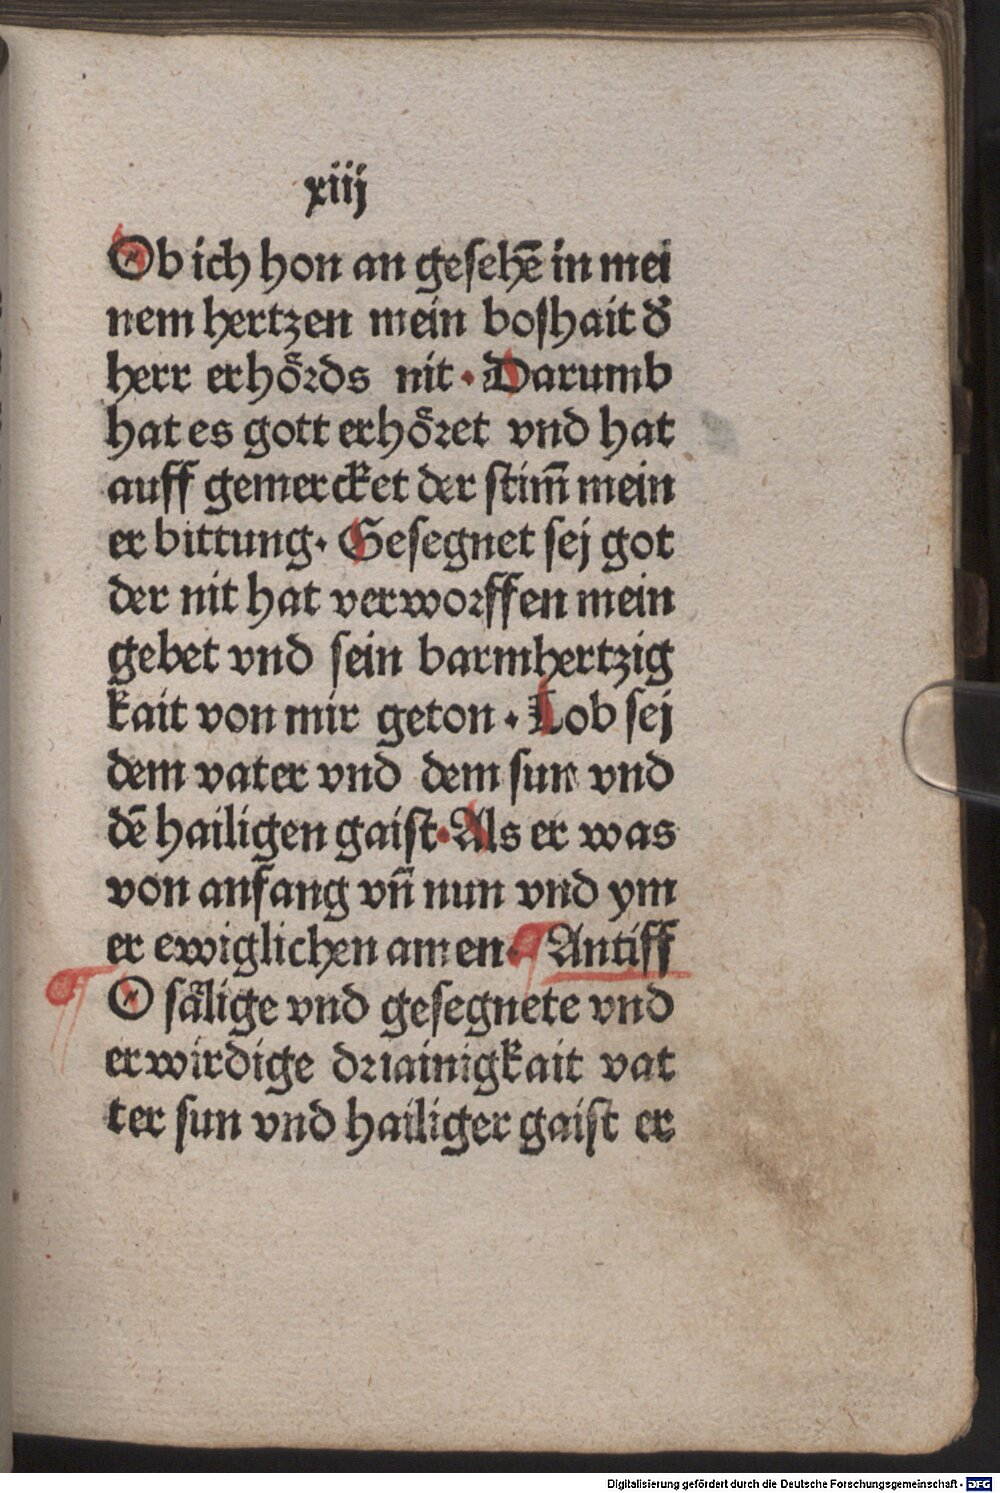 xiij
Ob ich hon an gesehē in mei
nem hertzen mein boshait d̕
herr erhoͤrds nit · Darumb
hat es gott erhoͤret vnd hat
auff gemercket der stim̅ mein
er bittung · Gesegnet sej got
der nit hat verworffen mein
gebet vnd sein barmhertzig
kait von mir geton · Lob sej
dem vater vnd dem sun vnd
dē hailigen gaist · Als er was
von anfang vn̅ nun vnd ym
er ewiglichen amen · ¶ Antiff
¶ O saͤlige vnd gesegnete vnd
erwirdige driainigkait vat
ter sun vnd hailiger gaist er
Digitalisierung gefördert durch die Deutsche Forschungsgemeinschaft - DFG